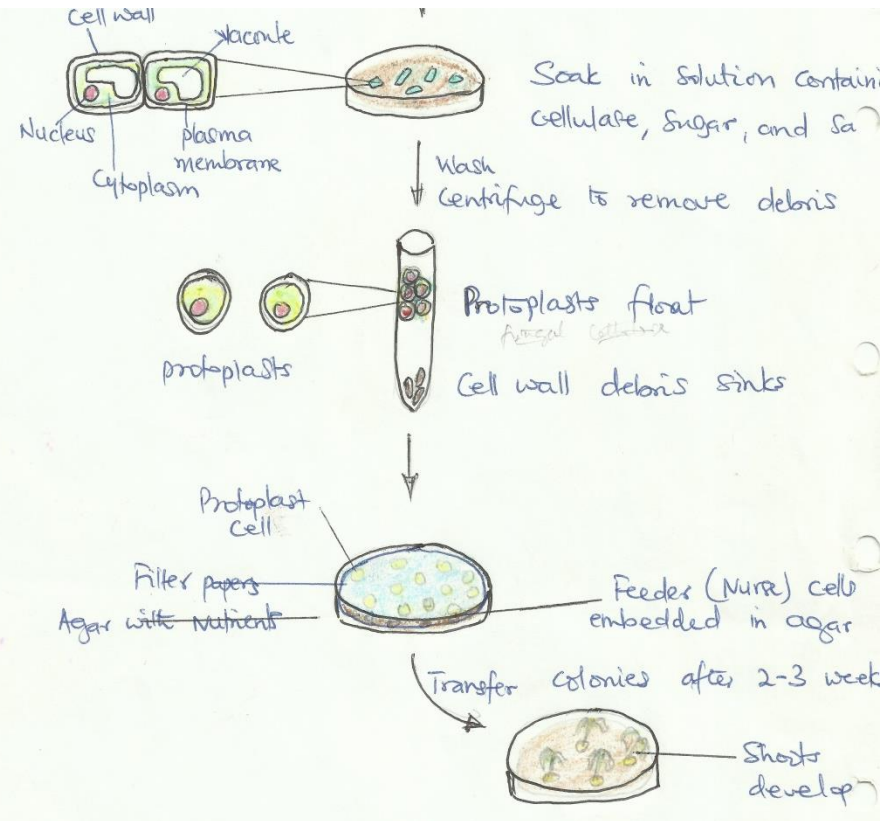 Cell wall
Vacoule
Nucleus
plasma
membrane
Cytoplasm
Soak in solution containi
cellulase, sugar, and sa
Wash
Centrifuge to remove debris
Protoplasts float
fungal
Cell wall debris sinks
protoplasts
Protoplast
Cell
Filter papers
Agar with nutrients
Feeder (Nurse) cells
embedded in agar
Transfer colonies after 2-3 week
Shoots
develop